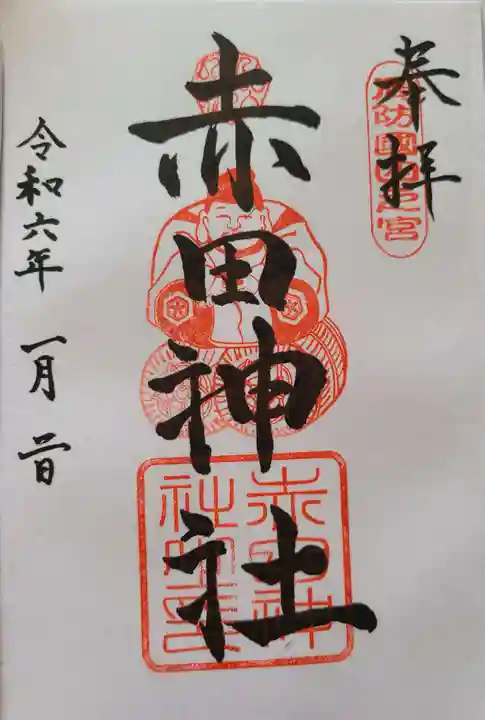 奉拝
周防國四之宮
赤田神社
赤田神社之印
令和六年一月二日